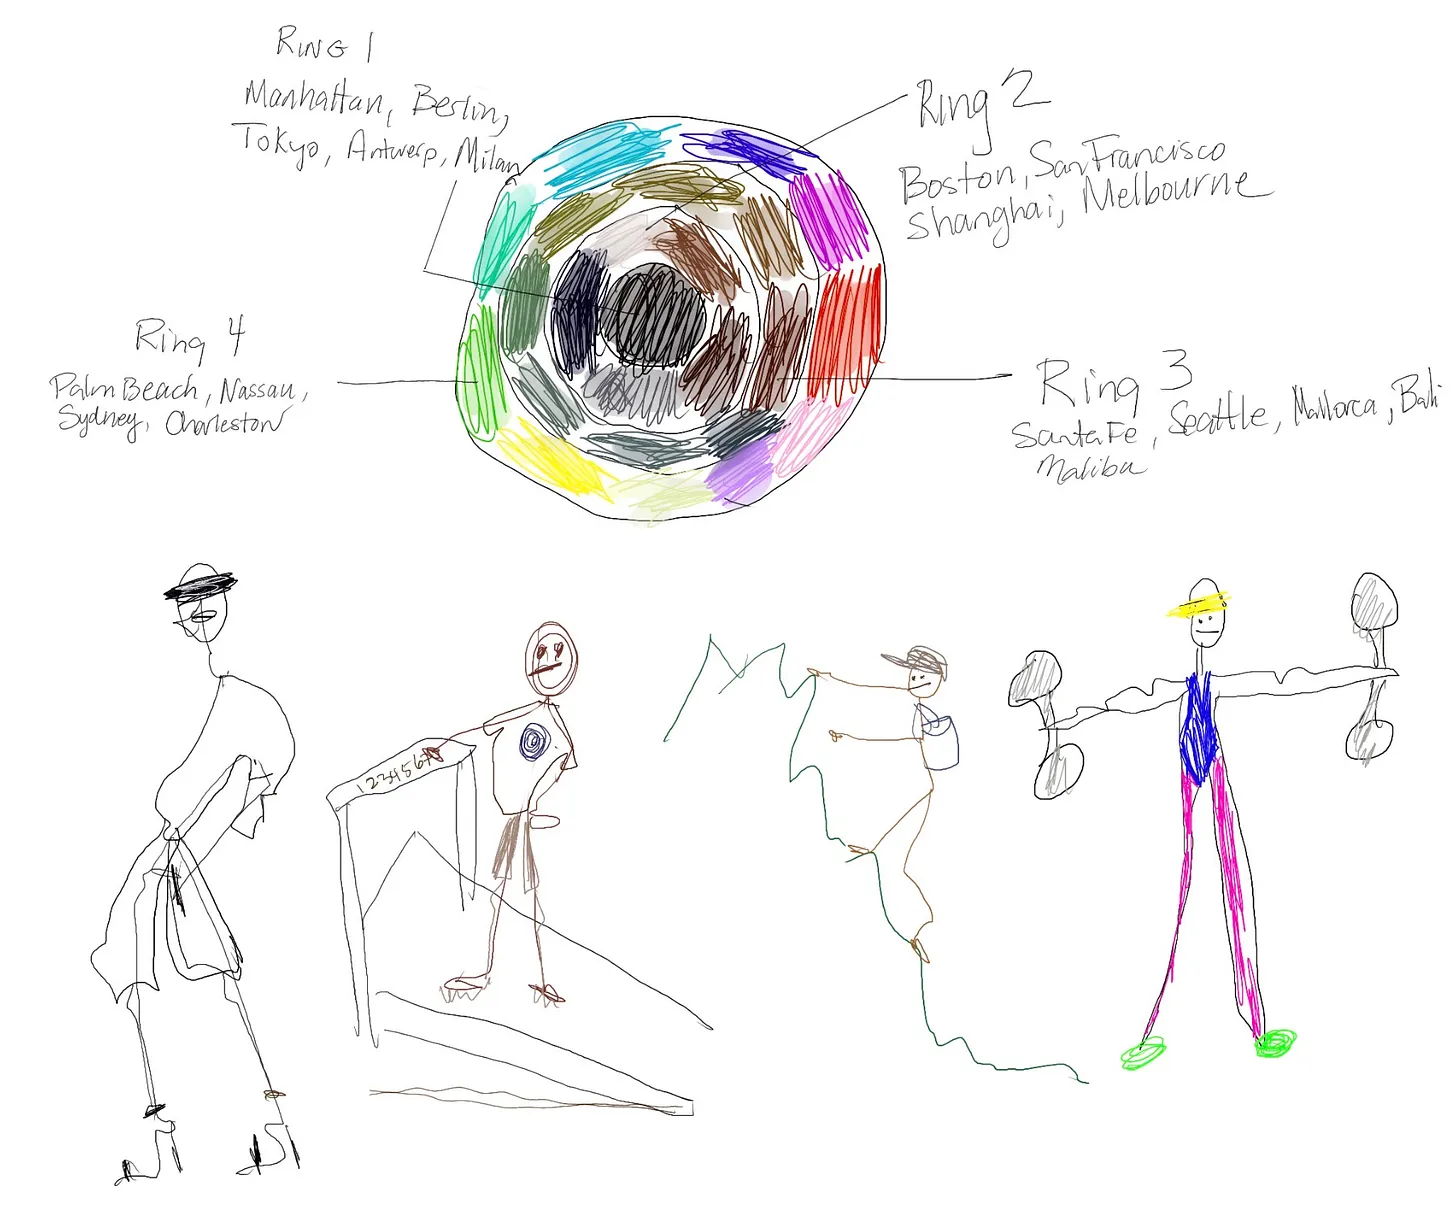 RING 1
Manhattan, Berlin,
Tokyo, Antwerp, Milan
Ring 2
Boston, San Francisco
Shanghai, Melbourne
Ring 4
Palm Beach, Nassau,
Sydney, Charleston
Ring 3
Santa Fe, Seattle, Mallorca, Bali
Malibu
1234567